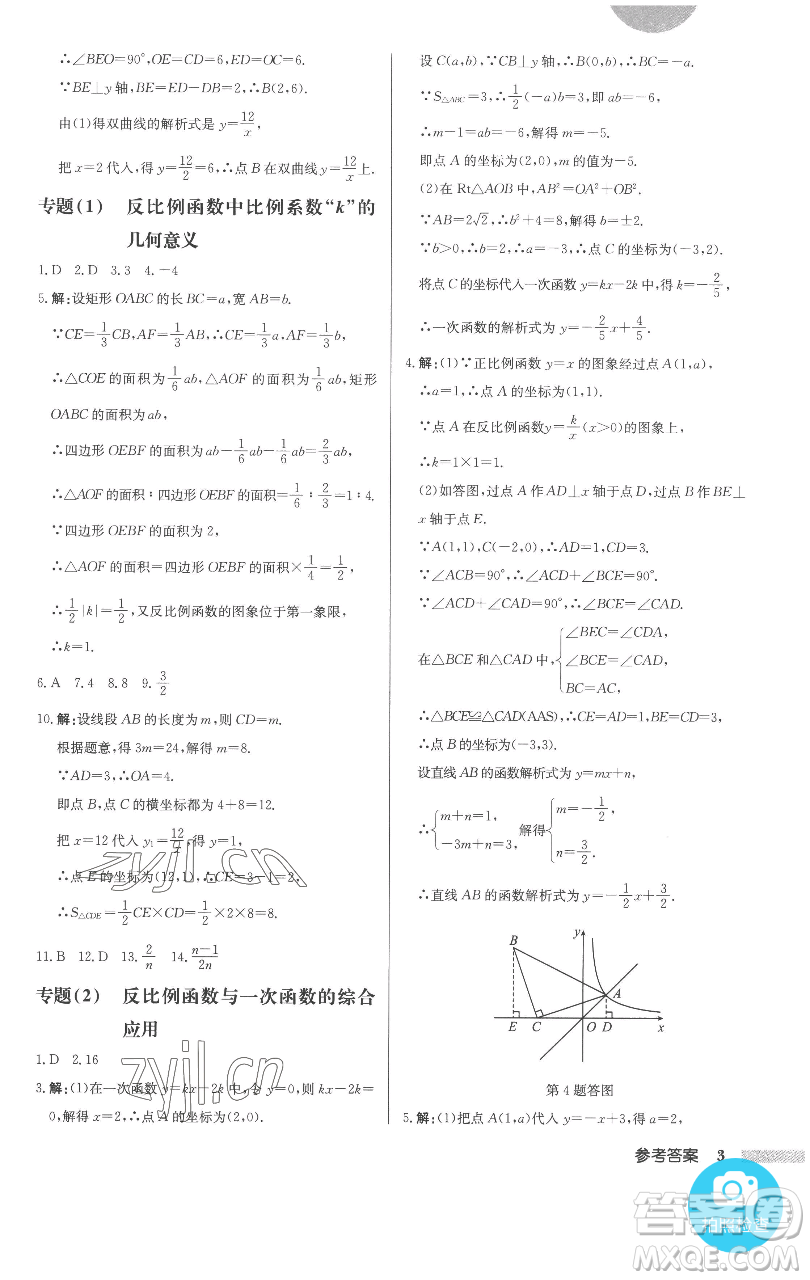 ∴∠BEO=90°,OE=CD=6,ED=OC=6.
∵BE⊥y 轴,BE=ED-DB=2,∴B(2,6).
由(1)得双曲线的解析式是 y=12/x,
把 x=2 代入,得 y=12/2=6,∴点 B 在双曲线 y=12/x上.
专题(1) 反比例函数中比例系数“k”的
几何意义
1.D 2.D 3.3 4.-4
5.解:设矩形 OABC 的长 BC=a,宽 AB=b.
∵CE=1/3CB,AF=1/3AB,∴CE=1/3a,AF=1/3b,
∴△COE 的面积为1/6ab,△AOF 的面积为1/6ab,矩形
OABC 的面积为 ab,
∴四边形 OEBF 的面积为 ab-1/6ab-1/6ab=2/3ab
∴△AOF 的面积:四边形 OEBF 的面积=1/6:2/3=1:4.
∵四边形 OEBF 的面积为 2,
∴△AOF 的面积=四边形 OEBF 的面积×1/4=1/2,
∴1/2|k|=1/2,又反比例函数的图象位于第一象限,
∴k=1.
6.A 7.4 8.8 9.3/2
10.解:设线段 AB 的长度为 m,则 CD=m.
根据题意,得 3m=24,解得 m=8.
∵AD=3,∴OA=4.
即点 B,点 C 的横坐标都为 4+8=12.
把 x=12 代入 y₁=12/x,得 y=1,
∴点 E 的坐标为(12,1),∴CE=3-1=2,
∴S△CDE=1/2CE×CD=1/2×2×8=8.
11.B 12.D 13.2/n 14.(n-1)/2n
专题(2) 反比例函数与一次函数的综合
应用
1.D 2.16
3.解:(1)在一次函数 y=kx-2k 中,令 y=0,则 kx-2k=
0,解得 x=2,∴点 A 的坐标为(2,0).
设 C(a,b),∵CB⊥y 轴,∴B(0,b),∴BC=-a.
∵S△ABC=3,∴1/2(-a)b=3,即 ab=-6,
∴m-1=ab=-6,解得 m=-5.
即点 A 的坐标为(2,0),m 的值为-5.
(2)在 Rt△AOB 中,AB²=OA²+OB².
∵AB=2√2,∴b²+4=8,解得 b=±2.
∵b>0,∴b=2,∴a=-3,∴点 C 的坐标为(-3,2).
将点 C 的坐标代入一次函数 y=kx-2k 得 k=-2/5,
∴一次函数的解析式为 y=-2/5x+4/5.
4.解:(1)∵正比例函数 y=x 的图象经过点 A(1,a),
∴a=1,∴点 A 的坐标为(1,1).
∵点 A 在反比例函数y=k/x(x>0)的图象上,
∴k=1×1=1.
(2)如答图,过点 A 作 AD⊥x 轴于点 D,过点 B 作 BE⊥
x 轴于点 E.
∵A(1,1),C(-2,0),∴AD=1,CD=3.
∵∠ACB=90°,∴∠ACD+∠BCE=90°.
∵∠ACD+∠CAD=90°,∴∠BCE=∠CAD.
在△BCE 和△CAD 中,{∠BEC=∠CDA,
∠BCE=∠CAD,
BC=AC,
∴△BCE≌△CAD(AAS),∴CE=AD=1,BE=CD=3,
∴点 B 的坐标为(-3,3).
设直线 AB 的函数解析式为 y=mx+n,
∴{m+n=1, -3m+n=3, 解得{m=-1/2, n=3/2.
∴直线 AB 的函数解析式为 y=-1/2x+3/2.
y
B
A
E C O D x
第 4 题答图
5.解:(1)把点 A(1,a)代入 y=-x+3,得 a=2,
参考答案 3
zyjl.cn
zyjl.cn
答案卷
拍照检查
MXQE.COM